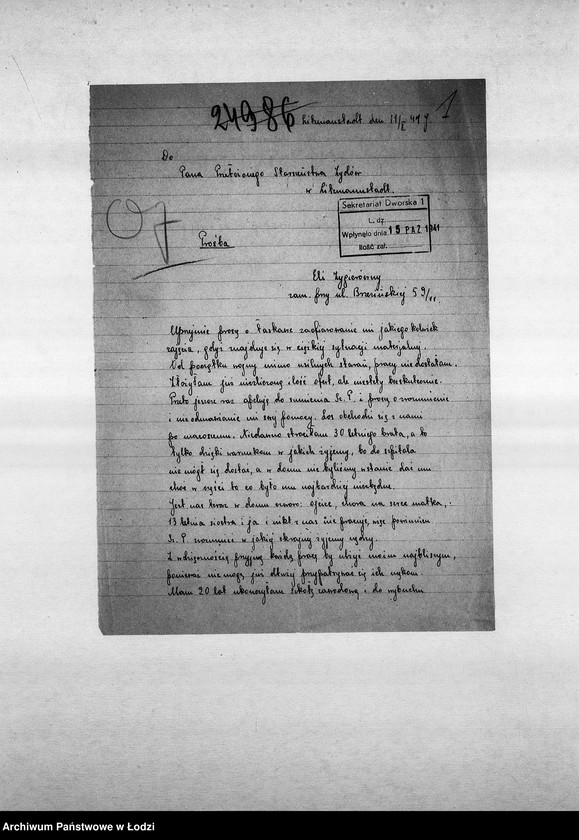 24986
1
Litzmannstadt den 11/X 41 J.
Do
Pana Przełożonego Starszeństwa Żydów
w Litzmannstadt.
Sekretariat Dworska 1
L. dz.
Wpłynęło dnia 15 PAŹ 1941
Ilość zał.
Prośba
Eli Zygierówny
zam. przy ul. Brzezińskiej 59/11.
Uprzejmie proszę o łaskawe zaofiarowanie mi jakiego kolwiek
zajęcia, gdyż znajduję się w ciężkiej sytuacji materjalnej.
Od początku wojny mimo usilnych starań, pracy nie dostałam.
Złożyłam już niezliczoną ilość ofert, ale niestety bezskutecznie.
Przeto jeszcze raz apeluję do sumienia Sz. P. i proszę o zrozumienie
i nie odmawianie mi swej pomocy. Los obchodzi się z nami
po macoszemu. Niedawno straciłam 30 letniego brata, a to
tylko dzięki warunkom w jakich żyjemy, bo do szpitala
nie mógł się dostać, a w domu nie byliśmy wstanie dać mu
choć w części to co było mu najbardziej niezbędne.
Jest nas teraz w domu czworo: ojciec, chora na serce matka,
13 letnia siostra i ja i nikt z nas nie pracuje, więc powinien
Sz. P. zrozumieć w jakiej skrajnej żyjemy nędzy.
Z wdzięcznością przyjmę każdą pracę by ulżyć moim najbliższym,
ponieważ nie mogę już dłużej przypatrywać się ich
Mam 20 lat ukończyłam szkołę zawodową i do wybuchu
Archiwum Państwowe w Łodzi